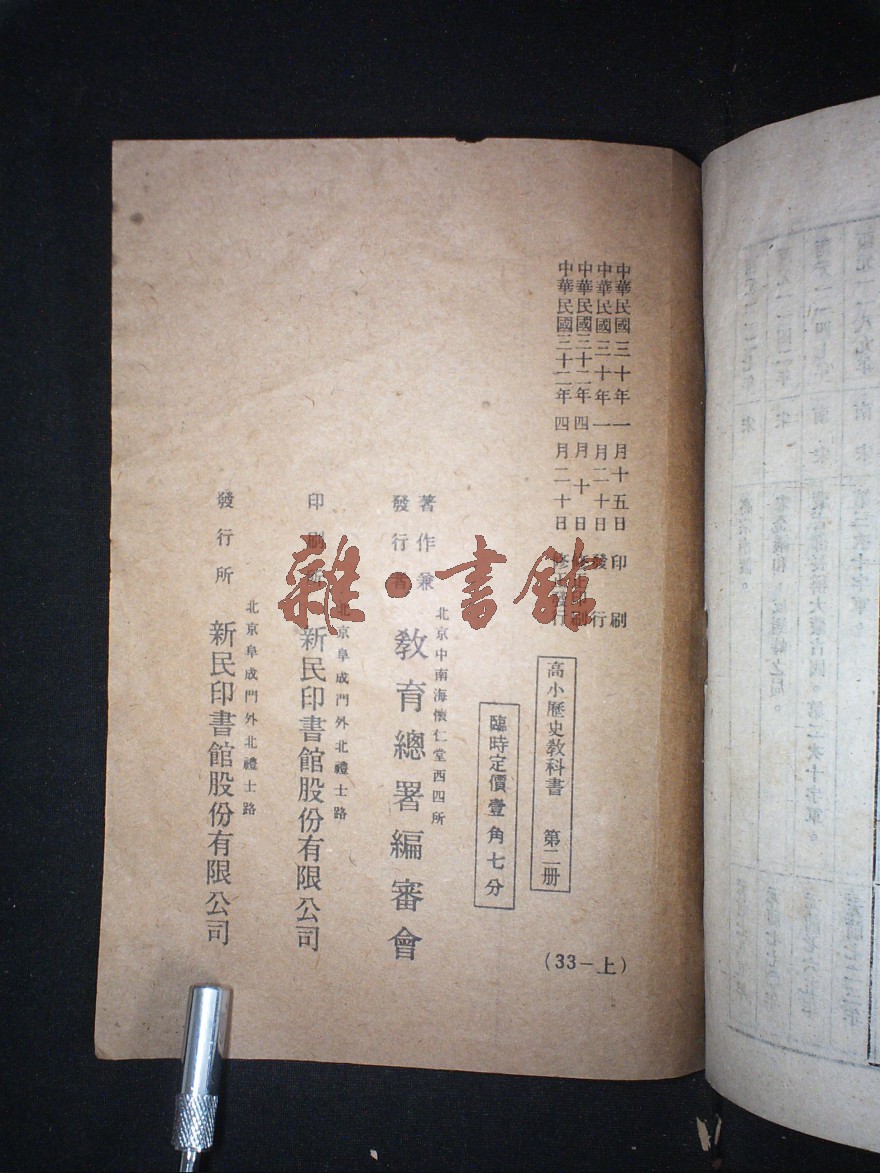 中華民國三十年一月十五日印刷
中華民國三十年一月二十日發行
中華民國三十二年四月十日修正印刷
中華民國三十二年四月二十日修正發行
高小歷史教科書 第二册
臨時定價壹角七分
(33－上)
著作兼
發行者
北京中南海懷仁堂西四所
教育總署編審會
印刷所
北京阜成門外北禮士路
新民印書館股份有限公司
發行所
北京阜成門外北禮士路
新民印書館股份有限公司
雜·書館